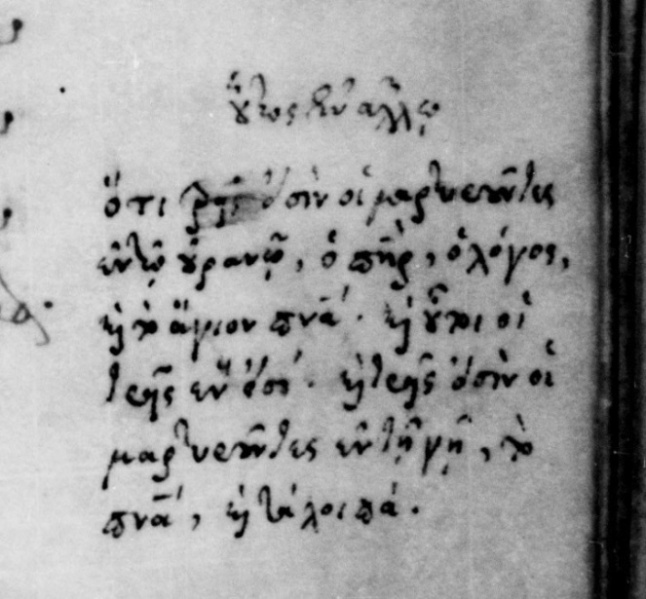 οὕτως ἐν ἄλλῳ
ὅτι τρεῖς εἰσὶν οἱ μαρτυροῦντες
ἐν τῷ οὐρανῷ, ὁ πηρ, ὁ λόγος,
καὶ τὸ ἅγιον πνα. καὶ οὗτοι οἱ
τρεῖς ἕν εἰσι. καὶ τρεῖς εἰσὶν οἱ
μαρτυροῦντες ἐν τῇ γῇ, τὸ
πνα, καὶ τὰ λοιπά.